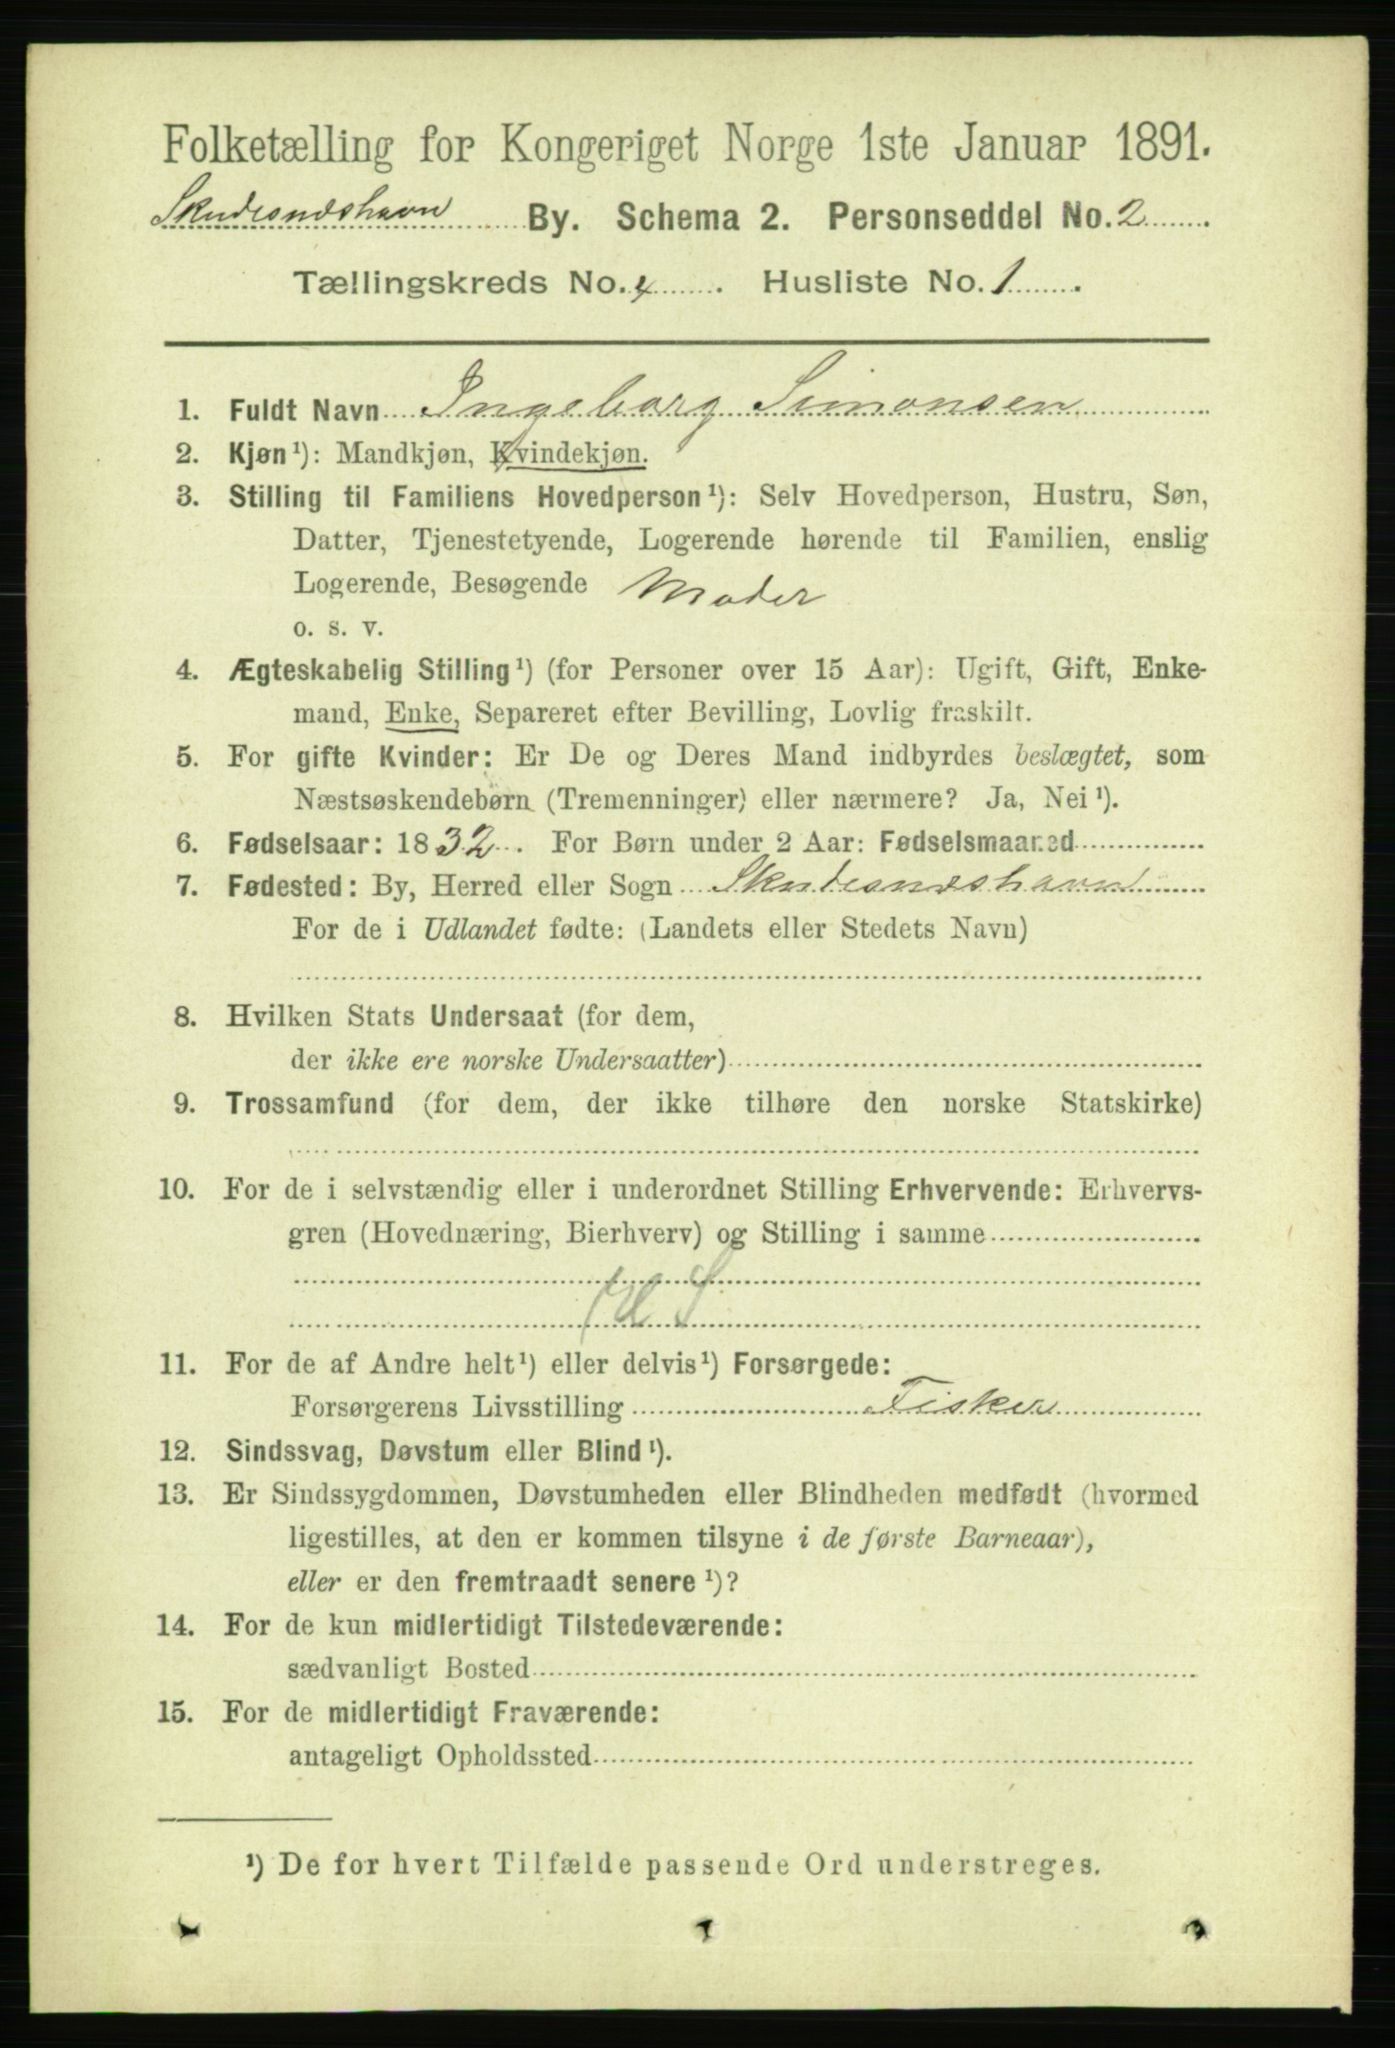 Folketælling for Kongeriget Norge 1ste Januar 1891.
Skudesneshavn By. Schema 2. Personseddel No. 2
Tællingskreds No. 4. Husliste No. 1.
1. Fuldt Navn Ingeborg Simonsen
2. Kjøn¹): Mandkjøn, Kvindekjøn.
3. Stilling til Familiens Hovedperson¹): Selv Hovedperson, Hustru, Søn,
Datter, Tjenestetyende, Logerende hørende til Familien, enslig
Logerende, Besøgende Moder
o. s. v.
4. Ægteskabelig Stilling¹) (for Personer over 15 Aar): Ugift, Gift, Enke-
mand, Enke, Separeret efter Bevilling, Lovlig fraskilt.
5. For gifte Kvinder: Er De og Deres Mand indbyrdes beslægtet, som
Næstsøskendebørn (Tremenninger) eller nærmere? Ja, Nei¹).
6. Fødselsaar: 1832. For Børn under 2 Aar: Fødselsmaaned
7. Fødested: By, Herred eller Sogn Skudesneshavn
For de i Udlandet fødte: (Landets eller Stedets Navn)
8. Hvilken Stats Undersaat (for dem,
der ikke ere norske Undersaatter)
9. Trossamfund (for dem, der ikke tilhøre den norske Statskirke)
10. For de i selvstændig eller i underordnet Stilling Erhvervende: Erhvervs-
gren (Hovednæring, Bierhverv) og Stilling i samme
11. For de af Andre helt¹) eller delvis¹) Forsørgede:
Forsørgerens Livsstilling Fisker
12. Sindssvag, Døvstum eller Blind¹).
13. Er Sindssygdommen, Døvstumheden eller Blindheden medfødt (hvormed
ligestilles, at den er kommen tilsyne i de første Barneaar),
eller er den fremtraadt senere¹)?
14. For de kun midlertidigt Tilstedeværende:
sædvanligt Bosted
15. For de midlertidigt Fraværende:
antageligt Opholdssted
¹) De for hvert Tilfælde passende Ord understreges.